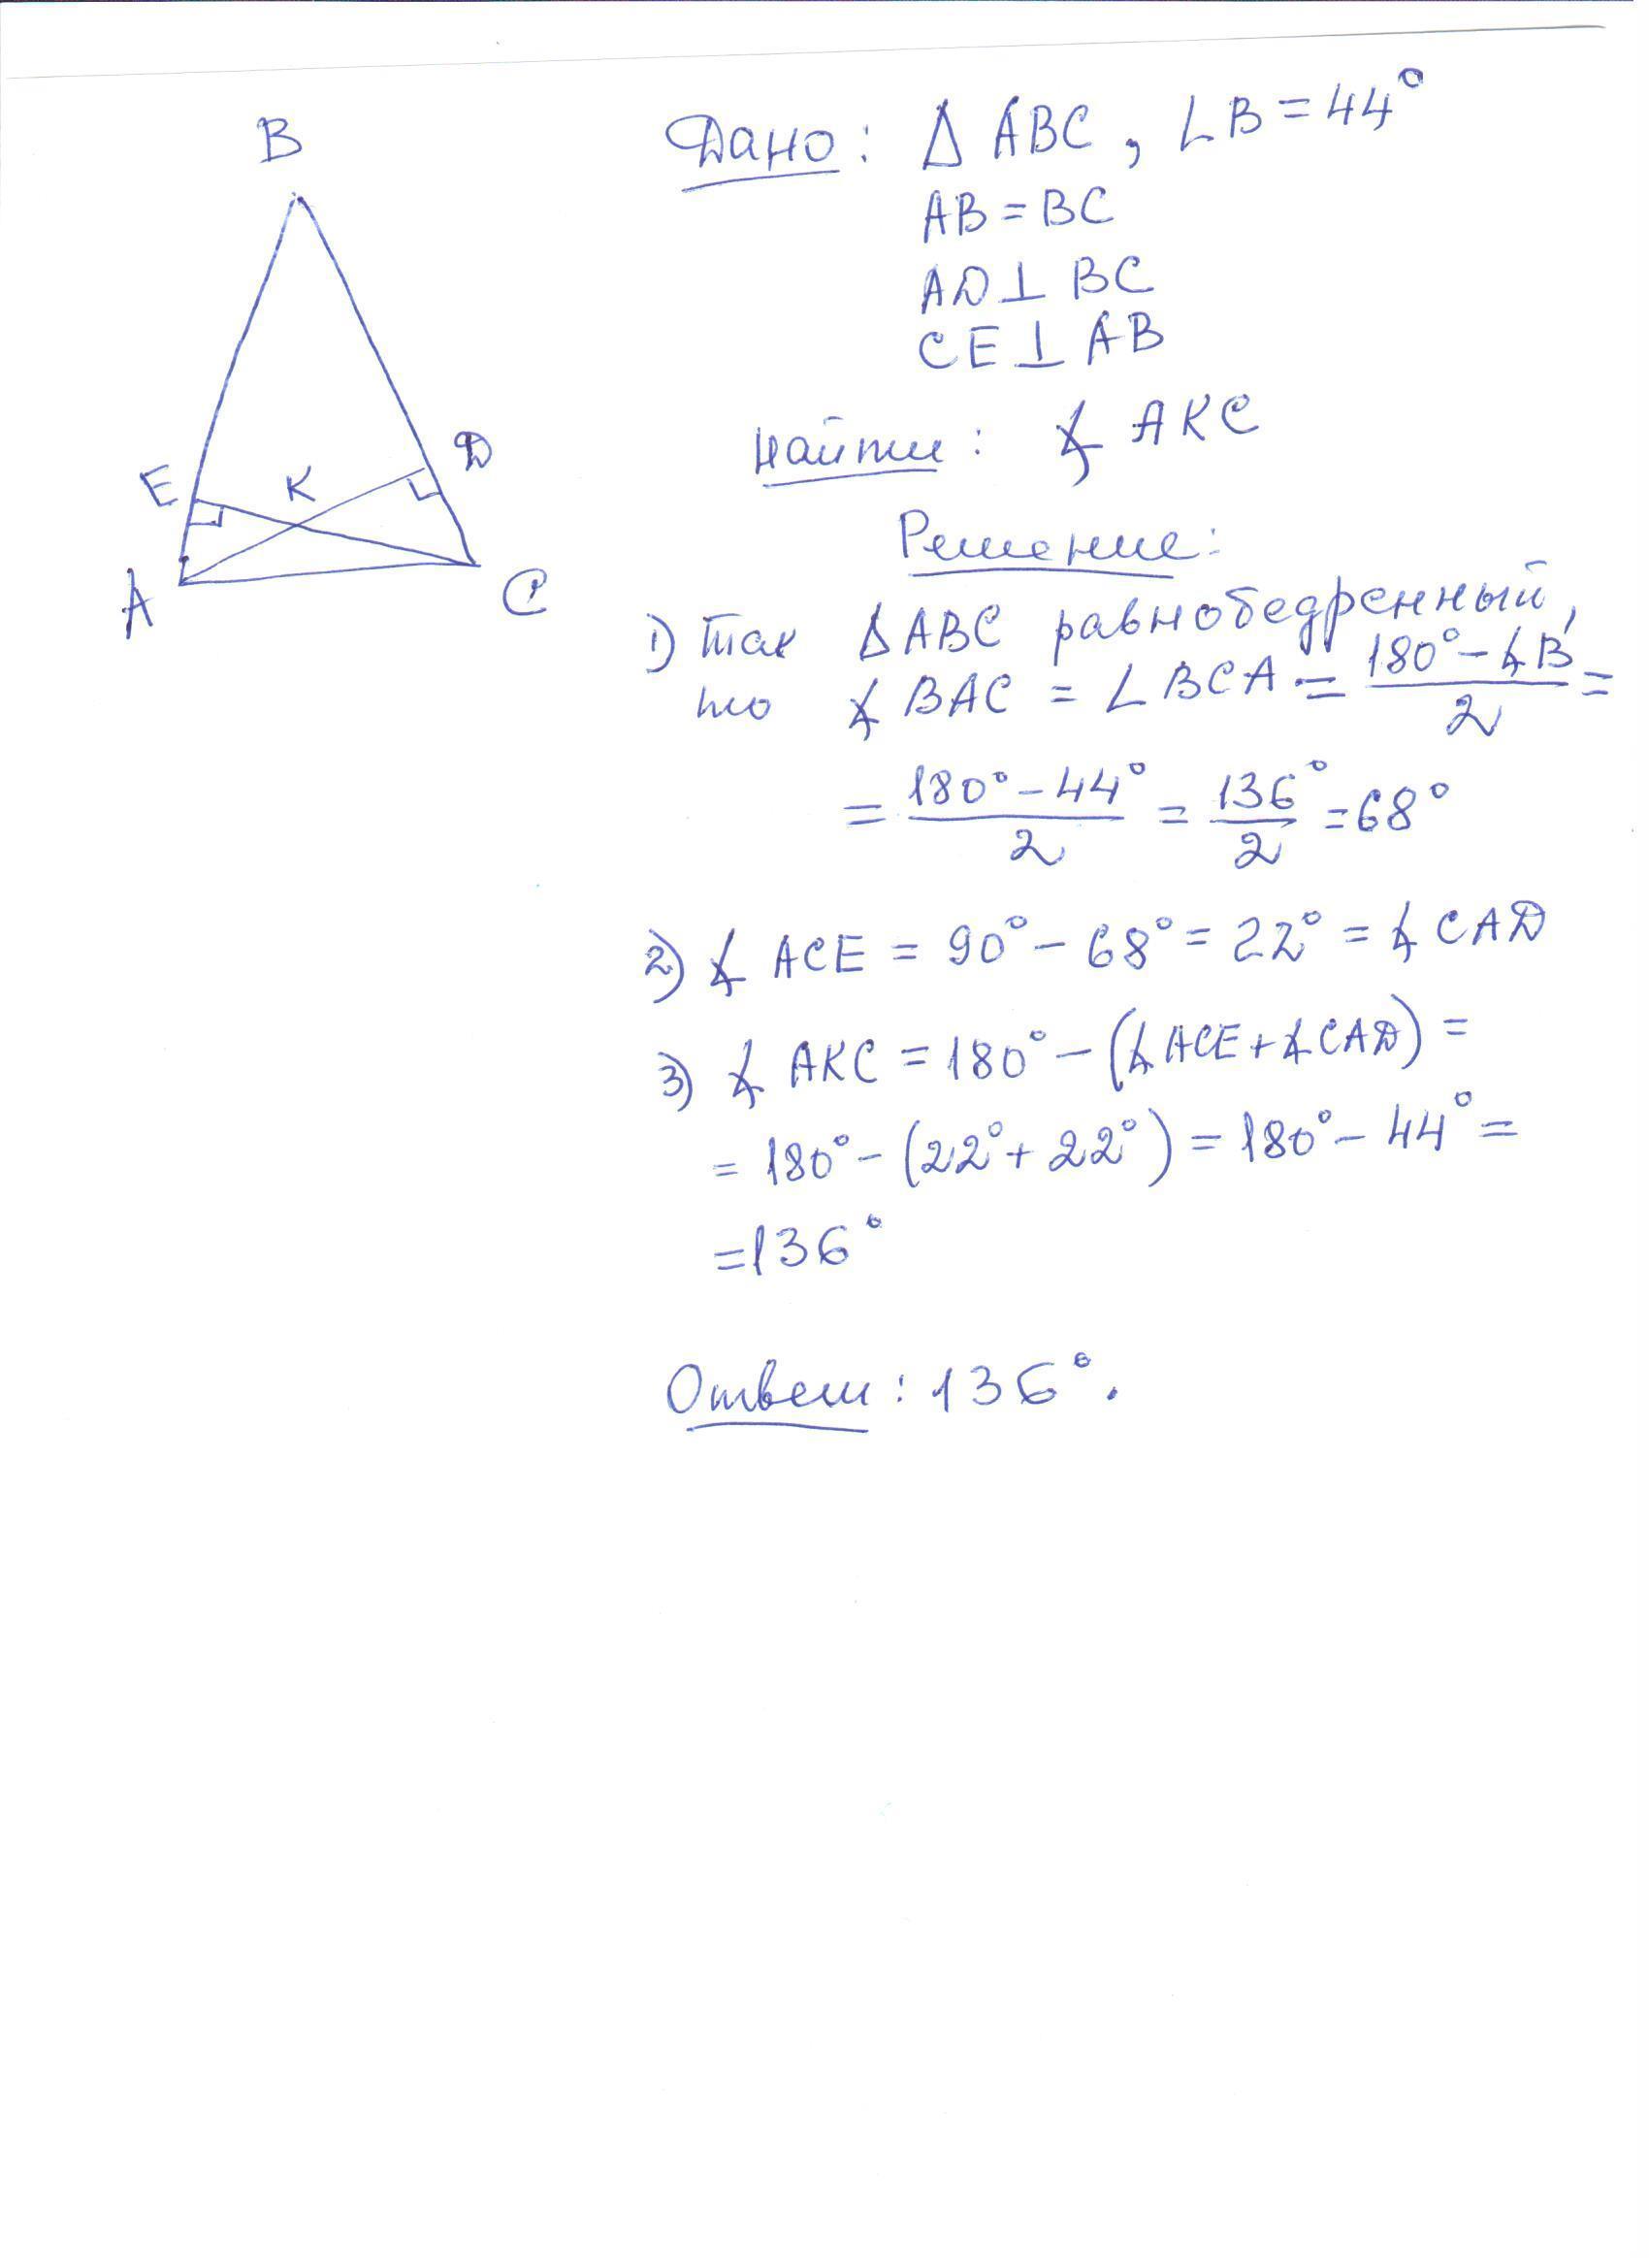 B
E
K
D
A
C
Дано: Δ ABC, ∠B = 44°
AB = BC
AD ⊥ BC
CE ⊥ AB
Найти: ∡ AKC
Решение:
1) Так ΔABC равнобедренный,
то ∡ BAC = ∠BCA = (180° - ∡B)/2 =
= (180° - 44°)/2 = 136°/2 = 68°
2) ∡ ACE = 90° - 68° = 22° = ∡ CAD
3) ∡ AKC = 180° - (∡ACE + ∡CAD) =
= 180° - (22° + 22°) = 180° - 44° =
= 136°
Ответ: 136°.